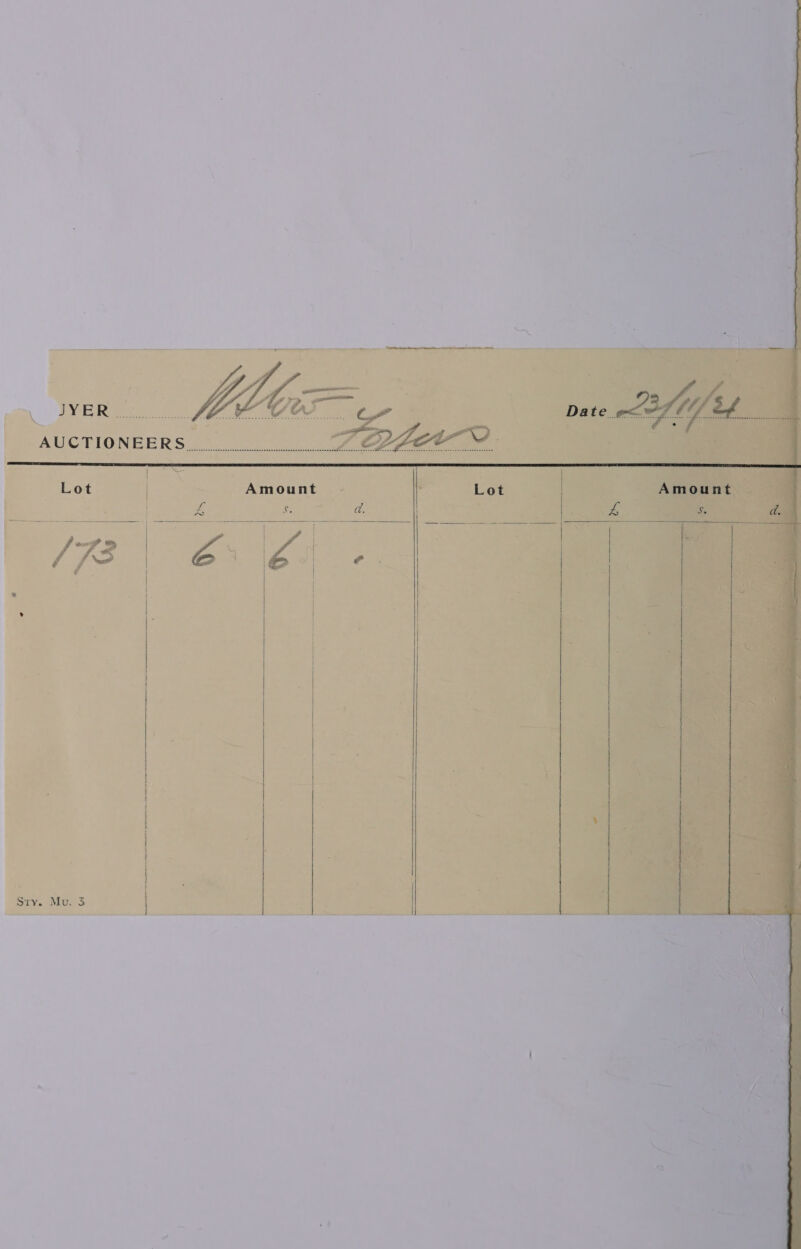 JYER Date 23/11/21
AUCTIONEERS
Lot Amount Lot Amount
£ s. d. £ s. d.
173 6 6 .
Sty. Mu. 3